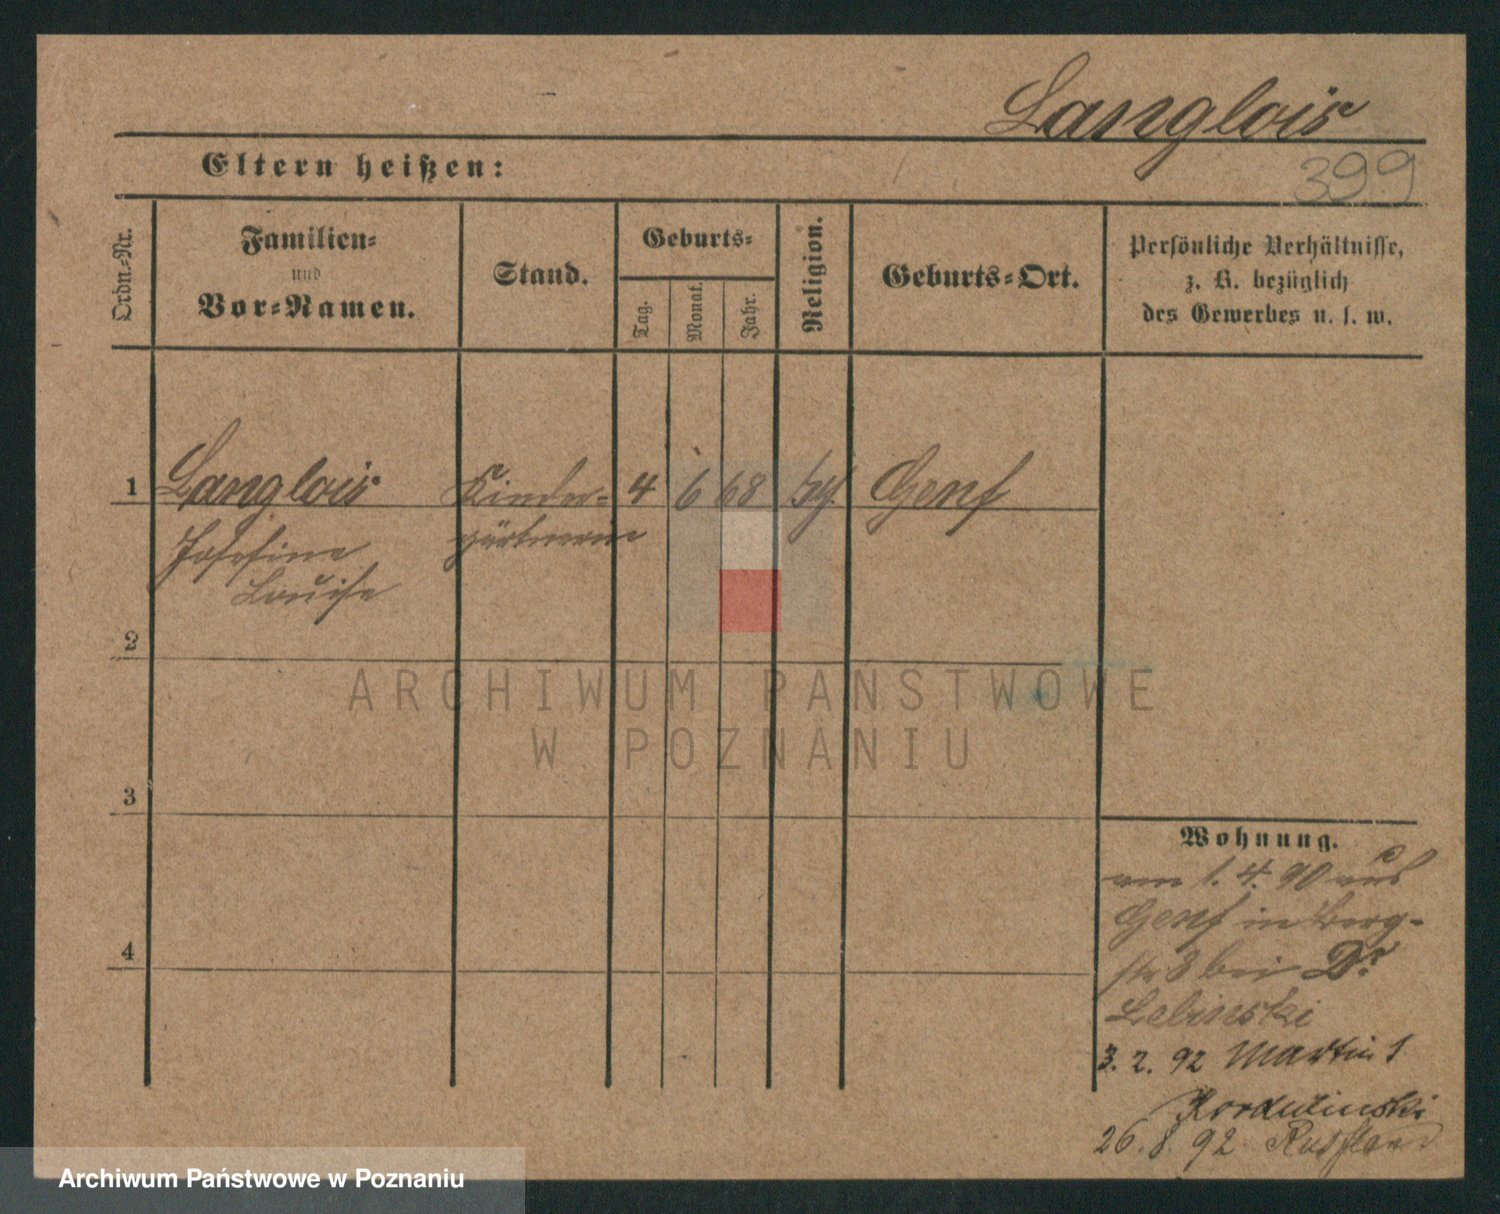 Langlois
399
Eltern heißen:
Ordn.-Nr.
Familien-
und
Vor-Namen.
Stand.
Geburts-
Tag.
Monat.
Jahr.
Religion.
Geburts-Ort.
Persönliche Verhältnisse,
z. B. bezüglich
des Gewerbes u. s. w.
1 Langlois Kinder- 4 6 68 Genf
Josefine gärtnerin
Louise
2
ARCHIWUM PAŃSTWOWE
W POZNANIU
3
4
Wohnung.
am 1. 4. 90 aus
Genf in Berg-
str 8 bei Dr
Lebinski
3. 2. 92 Martin 1
Kordulinski
26. 8. 92 Rußland
Archiwum Państwowe w Poznaniu